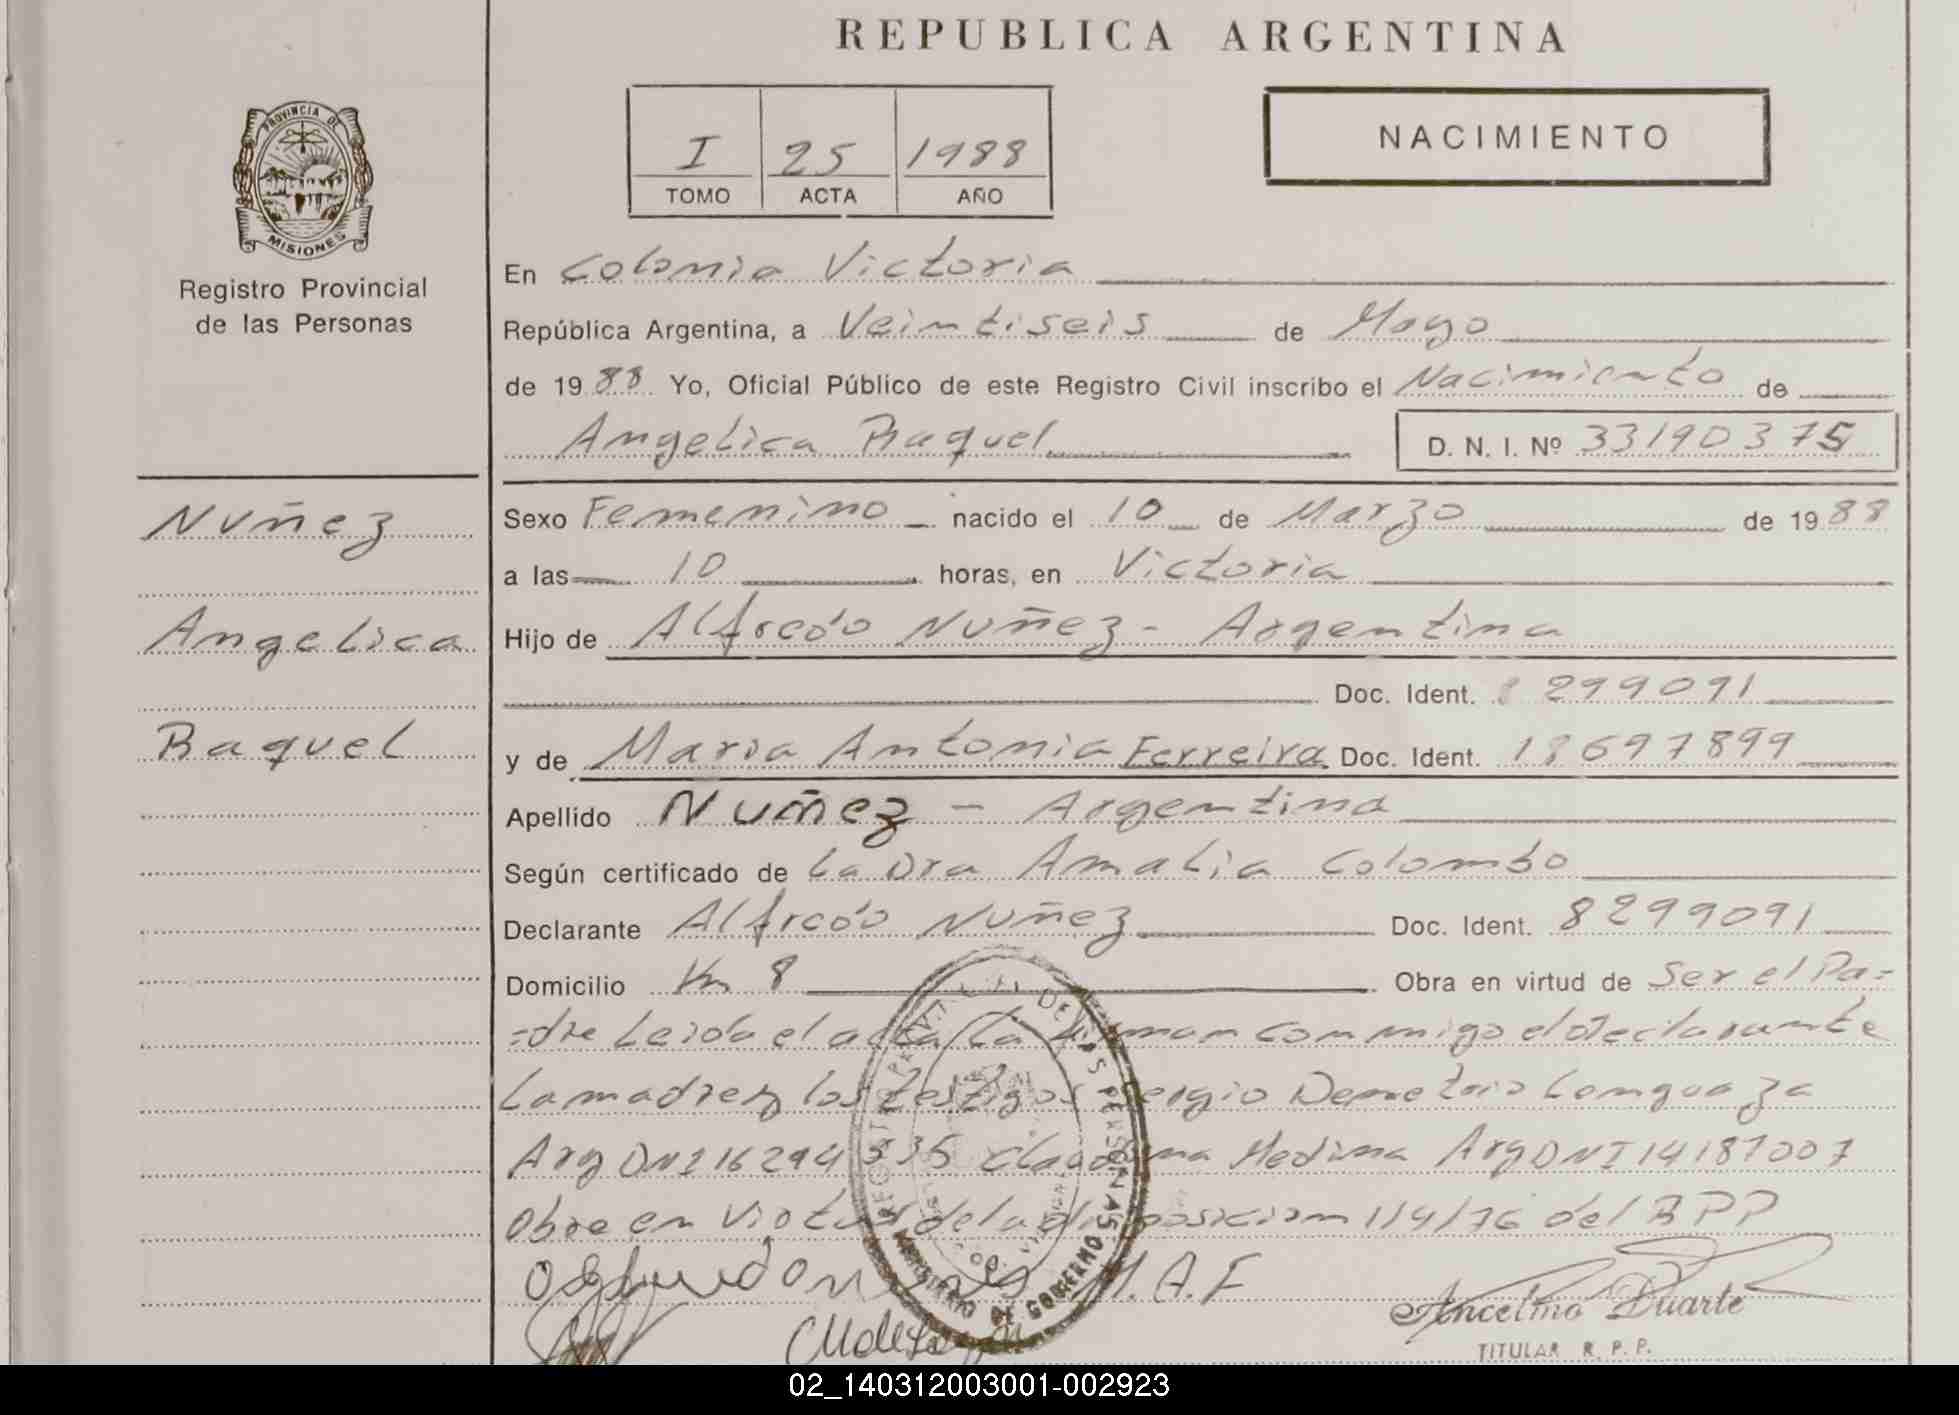 REPUBLICA ARGENTINA
PROVINCIA DE
MISIONES
Registro Provincial
de las Personas
I 25 1988
TOMO ACTA AÑO
NACIMIENTO
En Colonia Victoria
República Argentina, a Veintiseis de Mayo
de 1988 Yo, Oficial Público de este Registro Civil inscribo el Nacimiento de
Angelica Raquel D. N. I. Nº 33190375
Nuñez
Angelica
Raquel
Sexo Femenino nacido el 10 de Marzo de 1988
a las 10 horas, en Victoria
Hijo de Alfredo Nuñez - Argentina
Doc. Ident. 8299091
y de Maria Antonia Ferreira Doc. Ident. 18697899
Apellido Nuñez - Argentina
Según certificado de La Dra Amalia Colombo
Declarante Alfredo Nuñez Doc. Ident. 8299091
Domicilio Km 8 Obra en virtud de Ser el Pa=
=dre Leida el acta La firman conmigo el declarante
La madre y los testigos Sergio Demetrio
Arg DNI 16294335 Medina Arg DNI 14187007
Obre en virtud de la disposicion 114/76 del RPP
M.A.F
REGISTRO PROVINCIAL DE LAS PERSONAS
MINISTERIO DE GOBIERNO
Ancelmo Duarte
TITULAR R. P. P.
02_140312003001-002923